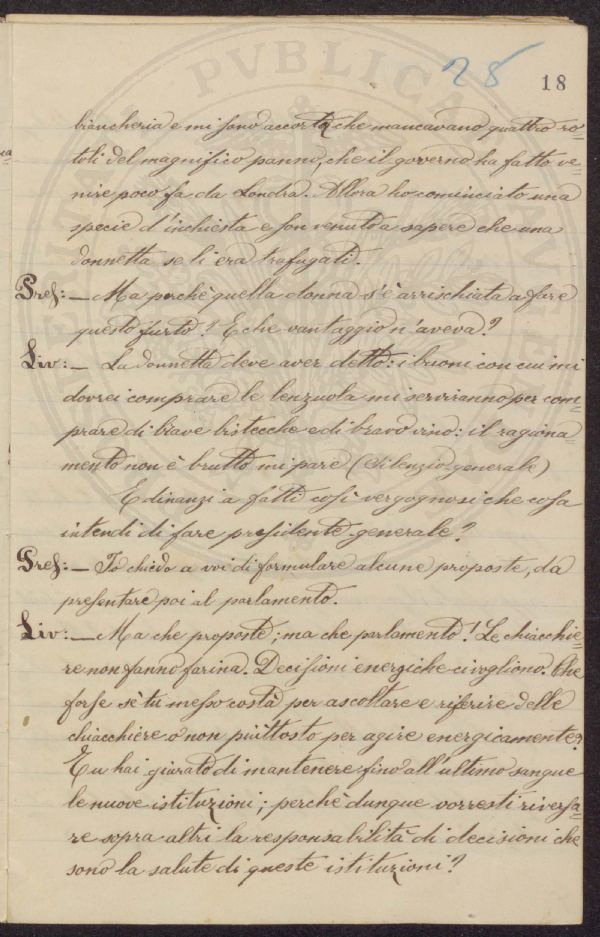 28
18
biancheria e mi sono accorto che mancavano quattro ro=
toli del magnifico panno, che il governo ha fatto ve=
nire poco fa da Londra. Allora ho cominciato una
specie d'inchiesta e son venuto a sapere che una
donnetta se li era trafugati.
Pres:— Ma perchè quella donna s'è arrischiata a fare
questo furto? E che vantaggio n'aveva?
Liv:— La donnetta deve aver detto: i buoni con cui mi
dovrei comprare le lenzuola mi serviranno per com=
prare di brave bistecche e di bravo vino: il ragiona=
mento non è brutto mi pare (Silenzio generale)
E dinanzi a fatti così vergognosi che cosa
intendi di fare presidente generale?
Pres:— Io chiedo a voi di formulare alcune proposte, da
presentare poi al parlamento.
Liv:— Ma che proposte; ma che parlamento! Le chiacchie=
re non fanno farina. Decisioni energiche ci vogliono. Che
forse sè tu messo costà per ascoltare e riferire delle
chiacchiere o non piùttosto per agire energicamente?
Tu hai giurato di mantenere fino all'ultimo sangue
le nuove istituzioni; perchè dunque vorresti riversa=
re sopra altri la responsabilità di decisioni che
sono la salute di queste istituzioni?